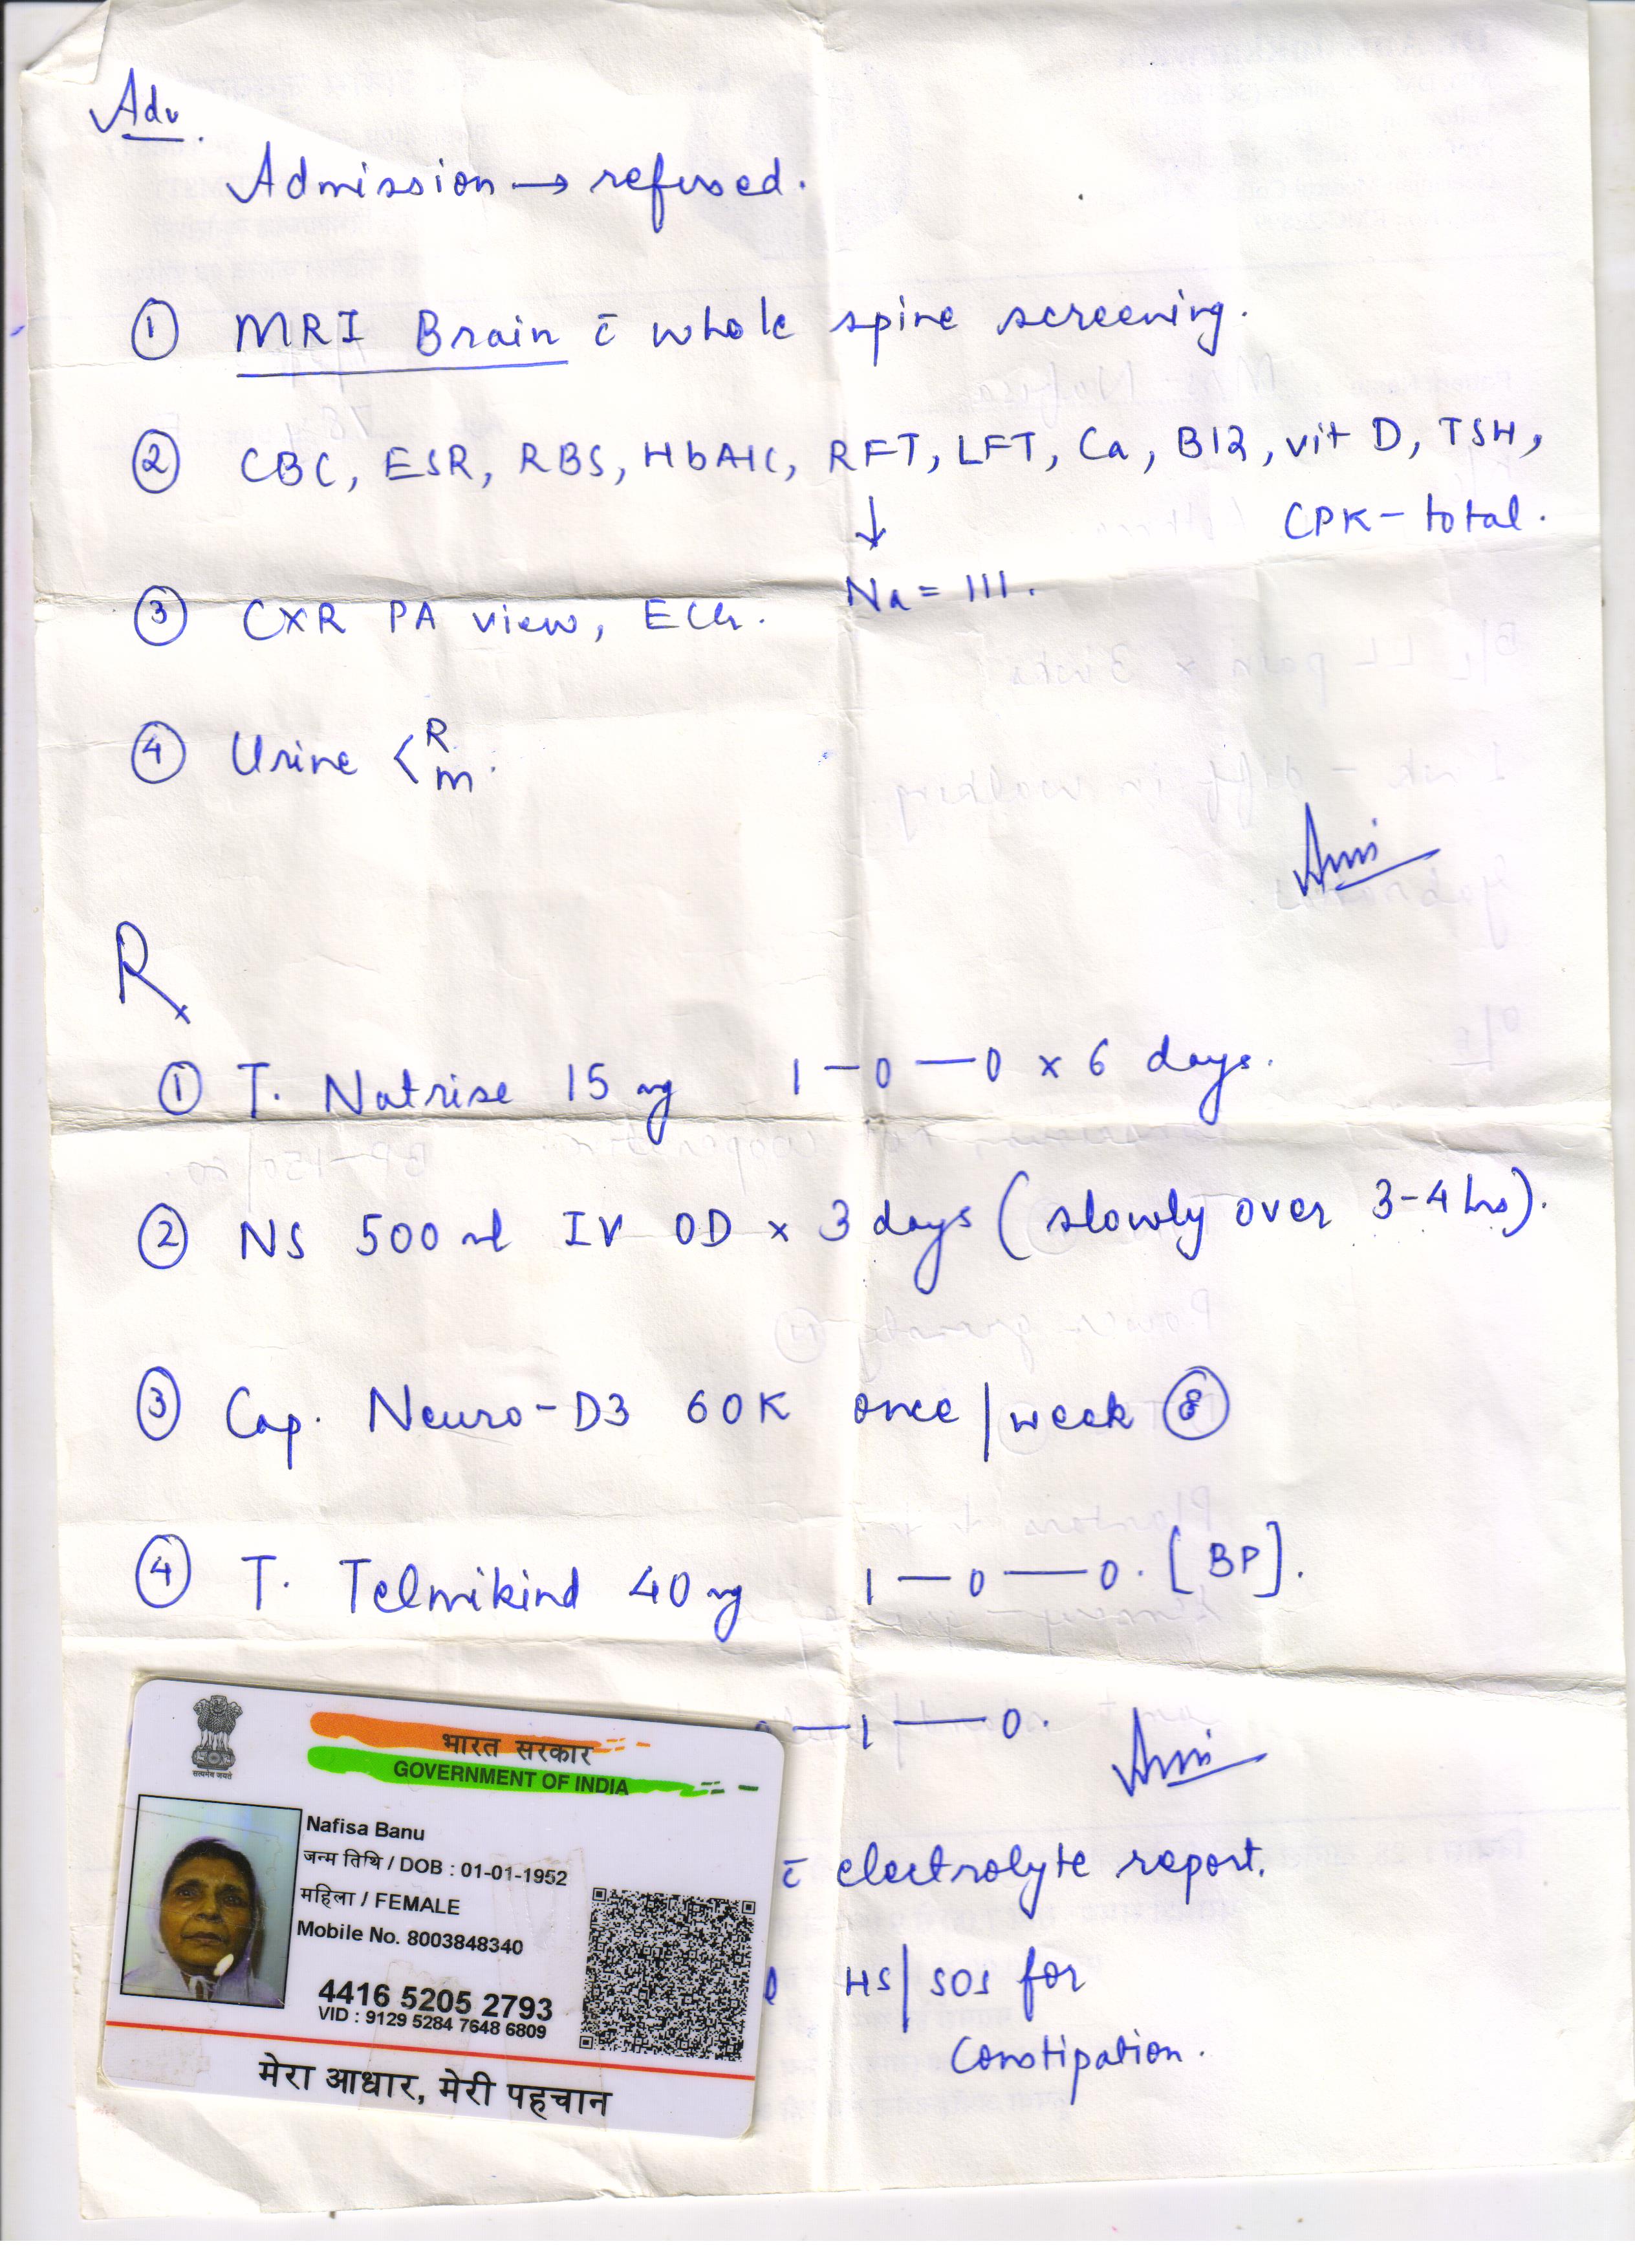 Adv.
Admission → refused.
① MRI Brain c̄ whole spine screening.
② CBC, ESR, RBS, HbA1C, RFT, LFT, Ca, B12, vit D, TSH,
CPK - total.
↓
Na = 111.
③ CXR PA view, ECG.
④ Urine < R
m.
Rx
① T. Natrise 15 mg 1 — 0 — 0 x 6 days.
② NS 500 ml IV OD x 3 days (slowly over 3-4 hrs).
③ Cap. Neuro-D3 60K once/week ⑧
④ T. Telmikind 40 mg 1 — 0 — 0. [BP].
— 1 — 0.
c̄ electrolyte report.
HS/SOS for
Constipation.
सत्यमेव जयते
भारत सरकार
GOVERNMENT OF INDIA
Nafisa Banu
जन्म तिथि / DOB : 01-01-1952
महिला / FEMALE
Mobile No. 8003848340
4416 5205 2793
VID : 9129 5284 7648 6809
मेरा आधार, मेरी पहचान